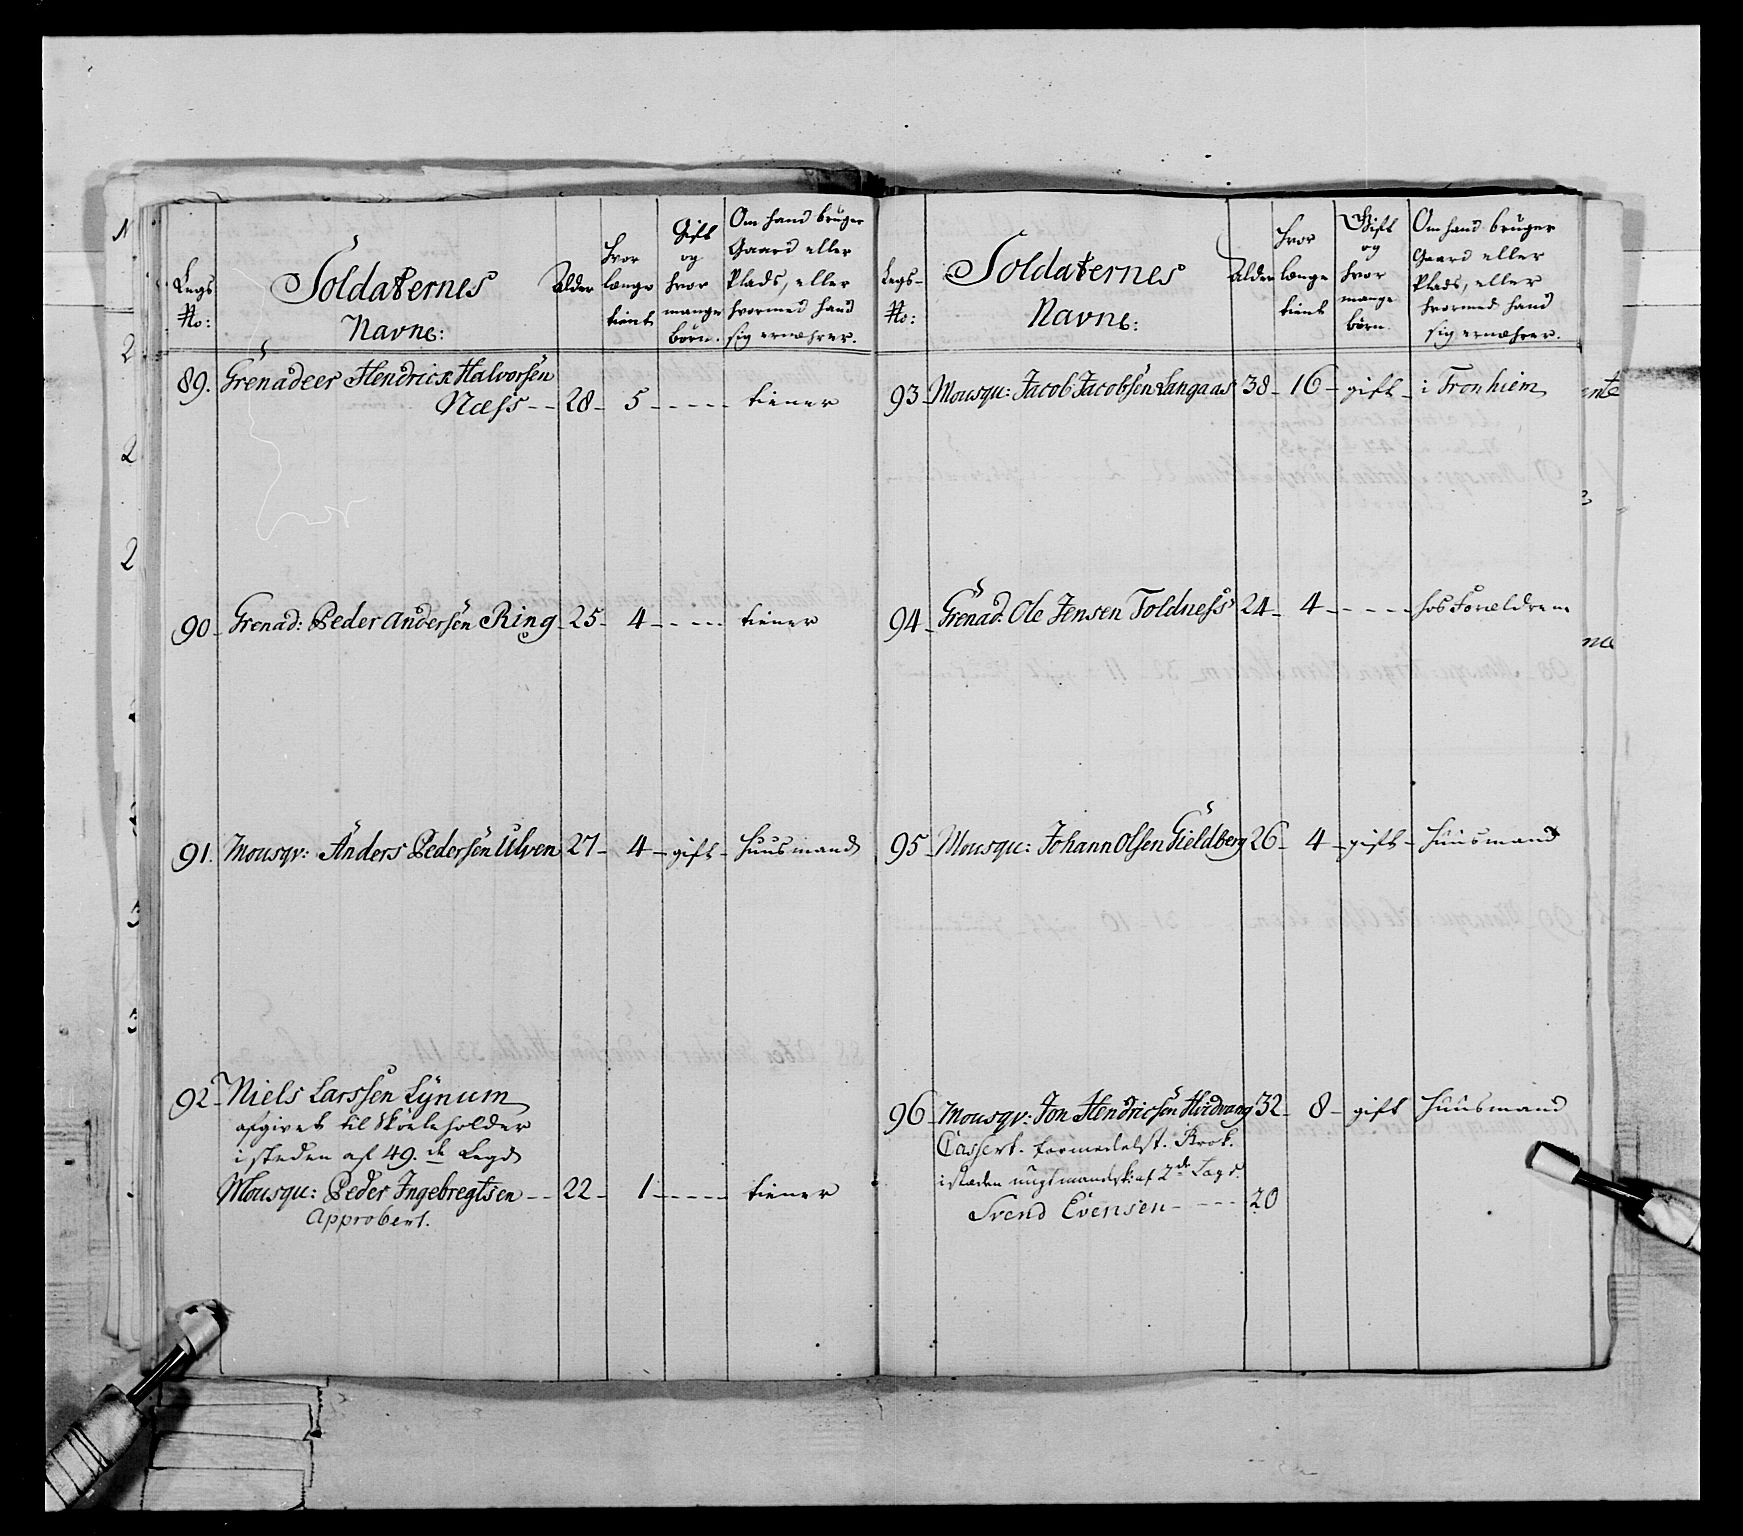 Legs
No:
Soldaternes
Navne:
Alder
hvor
længe
tient
Gift
og
hvor
mange
børn.
Om hand bruger
Gaard eller
Plads, eller
hvormed hand
sig ernærer.
89. Grenadeer Hendrick Halvorsen
Næss -- 28 - 5 ----- tiener
90 - Grenad: Peder Andersen Ring - 25 - 4 ----- tiener
91. Mousqv: Anders Pedersen Ulven 27 - 4 - gift - Huusmand
92 - Niels Larssen Lÿnum
afgivet til Skoeleholder
i steden af 49. de Legd
Mousqu: Peder Ingebregtsen -- 22 - 1 ----- tiener
Approbert.
Legs-
No:
Soldaternes
Navne:
Alder
hvor
længe
tient
Gift
og
hvor
mange
børn.
Om hand bruger
Gaard eller
Plads, eller
hvormed hand
sig ernærer.
93 - Mousqu: Jacob Jacobsen Langaas 38 - 16 - gift - i Tronhiem
94 - Grenad: Ole Jensen Toldness 24 - 4 ----- hos Forældrene
95 - Mousqu: Johann Olsen Gieldberg 26 - 4 - gift - Huusmand
96 - Mousqv: Jon Hendricsen Hvidvang 32 - 8 - gift Huusmand
Cassert. formedelst. Brok.
isteden ungmandsk: af 2de Lægd.
Svend Evensen ---- 20